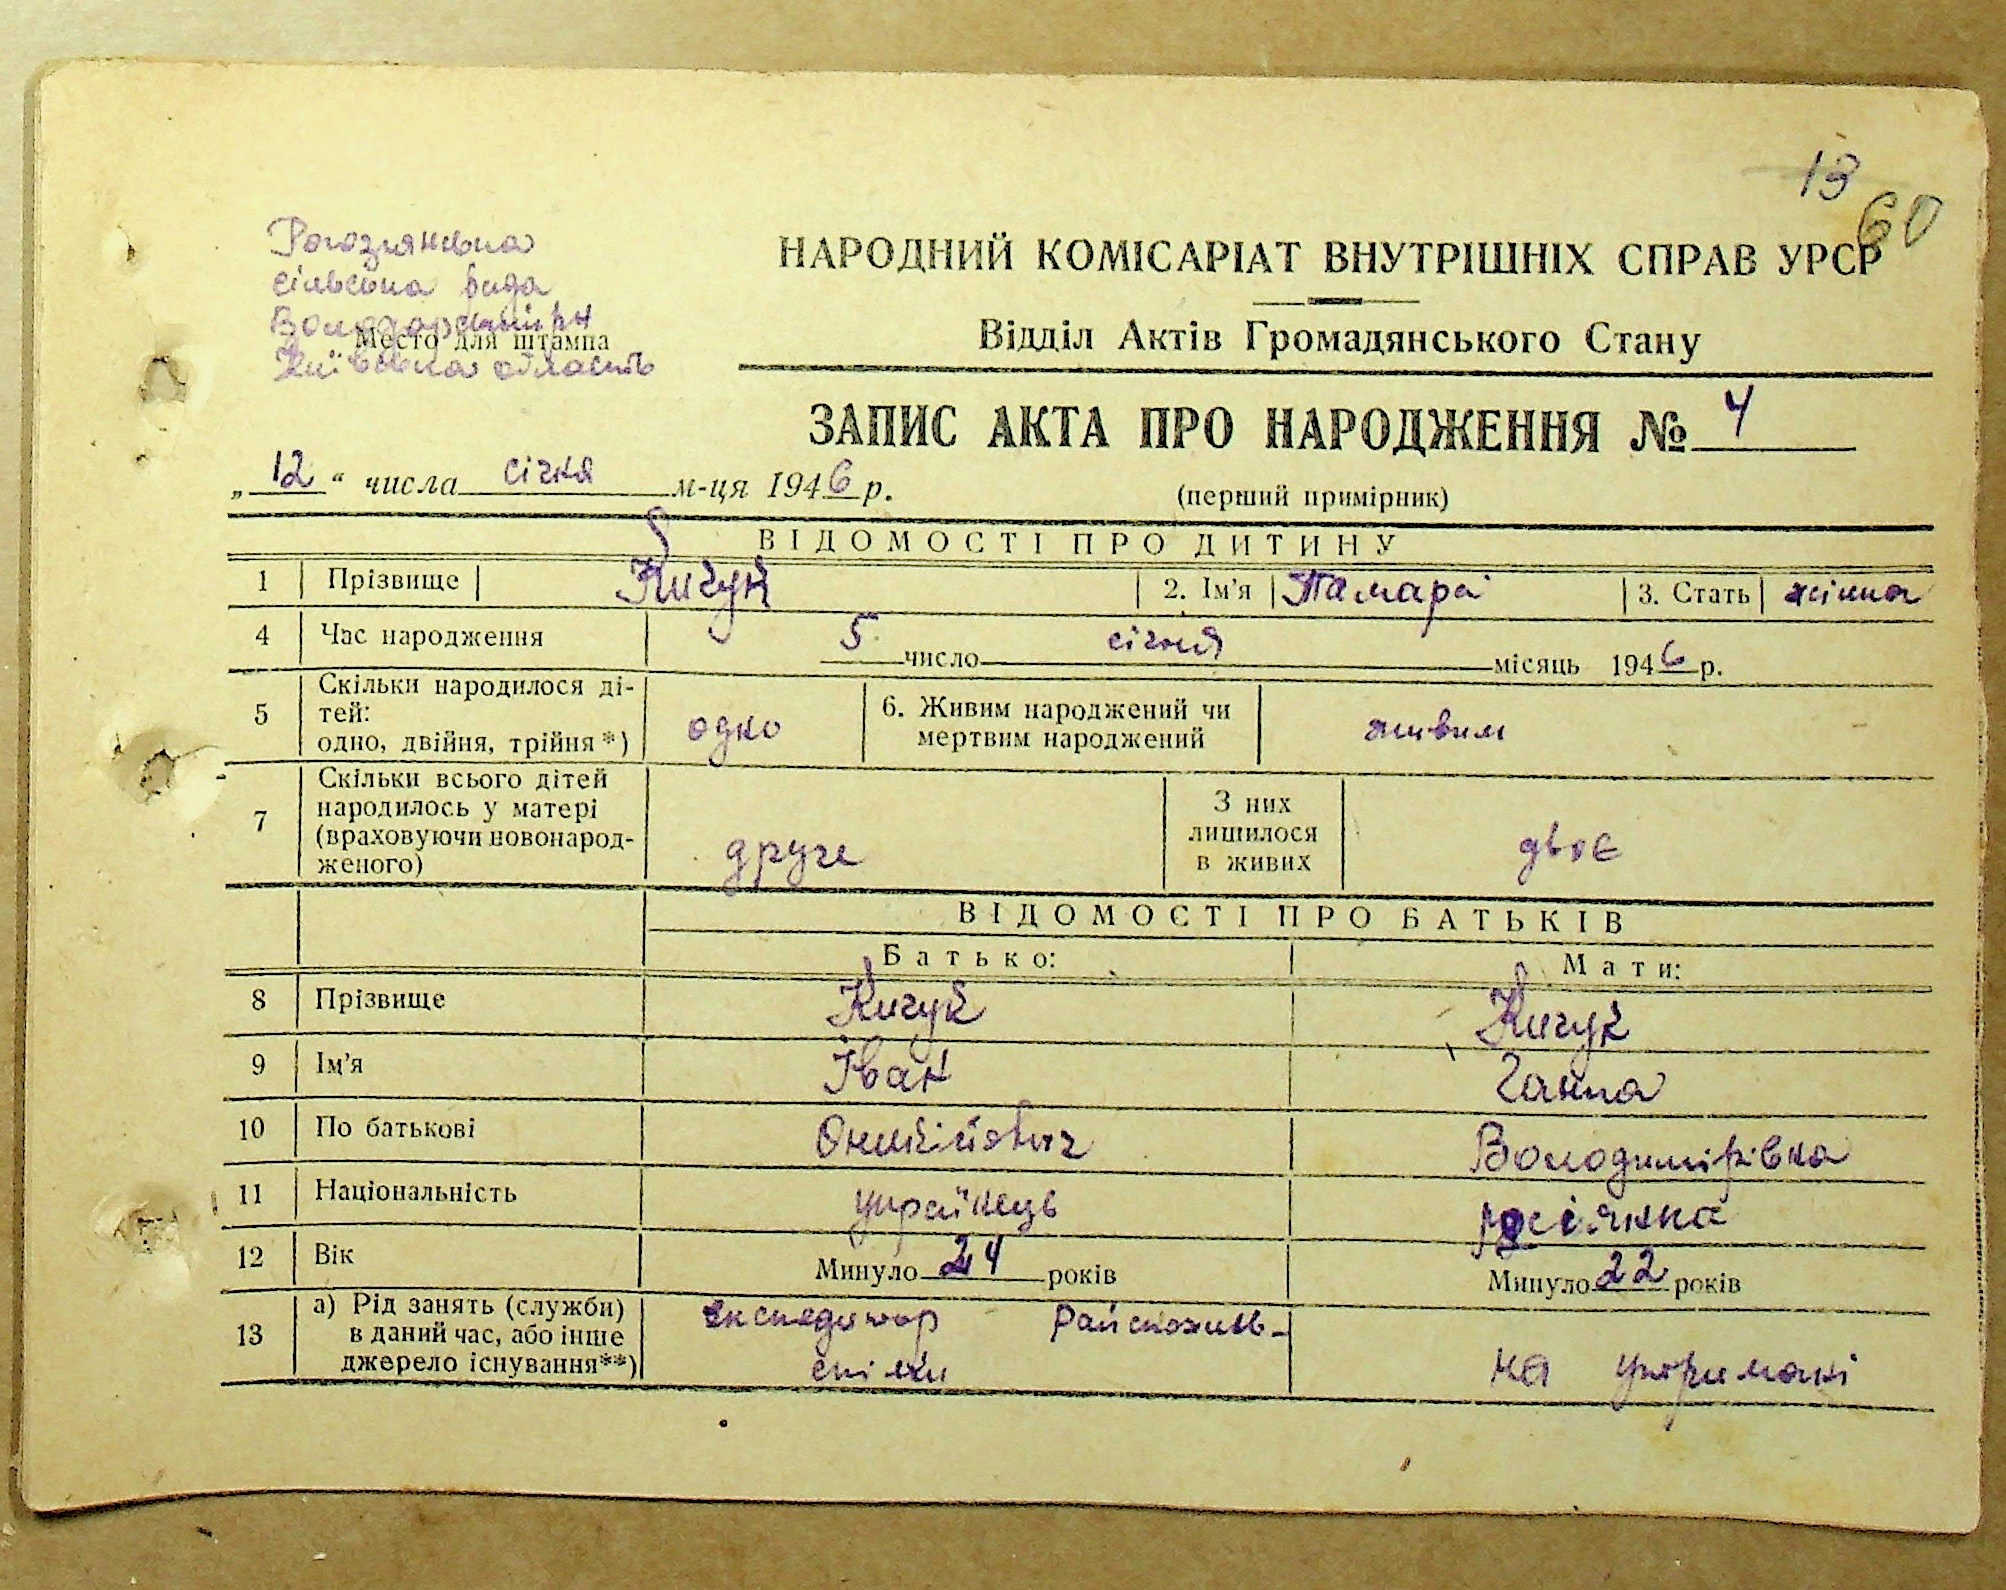 13
60
Рогознянська
сільська рада
Володарський рн
Київська область
Место для штампа
НАРОДНИЙ КОМІСАРІАТ ВНУТРІШНІХ СПРАВ УРСР
Відділ Актів Громадянського Стану
ЗАПИС АКТА ПРО НАРОДЖЕННЯ № 4
„12“ числа січня м-ця 1946 р.
(перший примірник)
ВІДОМОСТІ ПРО ДИТИНУ
1 Прізвище Кичук 2. Ім'я Тамара 3. Стать жіноча
4 Час народження 5 число січня місяць 1946 р.
5 Скільки народилося ді-
тей:
одно, двійня, трійня*) одно
6. Живим народжений чи
мертвим народжений живим
7 Скільки всього дітей
народилось у матері
(враховуючи новонарод-
женого) друге
З них
лишилося
в живих двоє
ВІДОМОСТІ ПРО БАТЬКІВ
Батько: Мати:
8 Прізвище Кичук Кичук
9 Ім'я Іван Ганна
10 По батькові Оникійович Володимирівна
11 Національність українець росіянка
12 Вік Минуло 24 років Минуло 22 років
13 а) Рід занять (служби)
в даний час, або інше
джерело існування**)
експедитор Райспожив-
спілки
на утримані